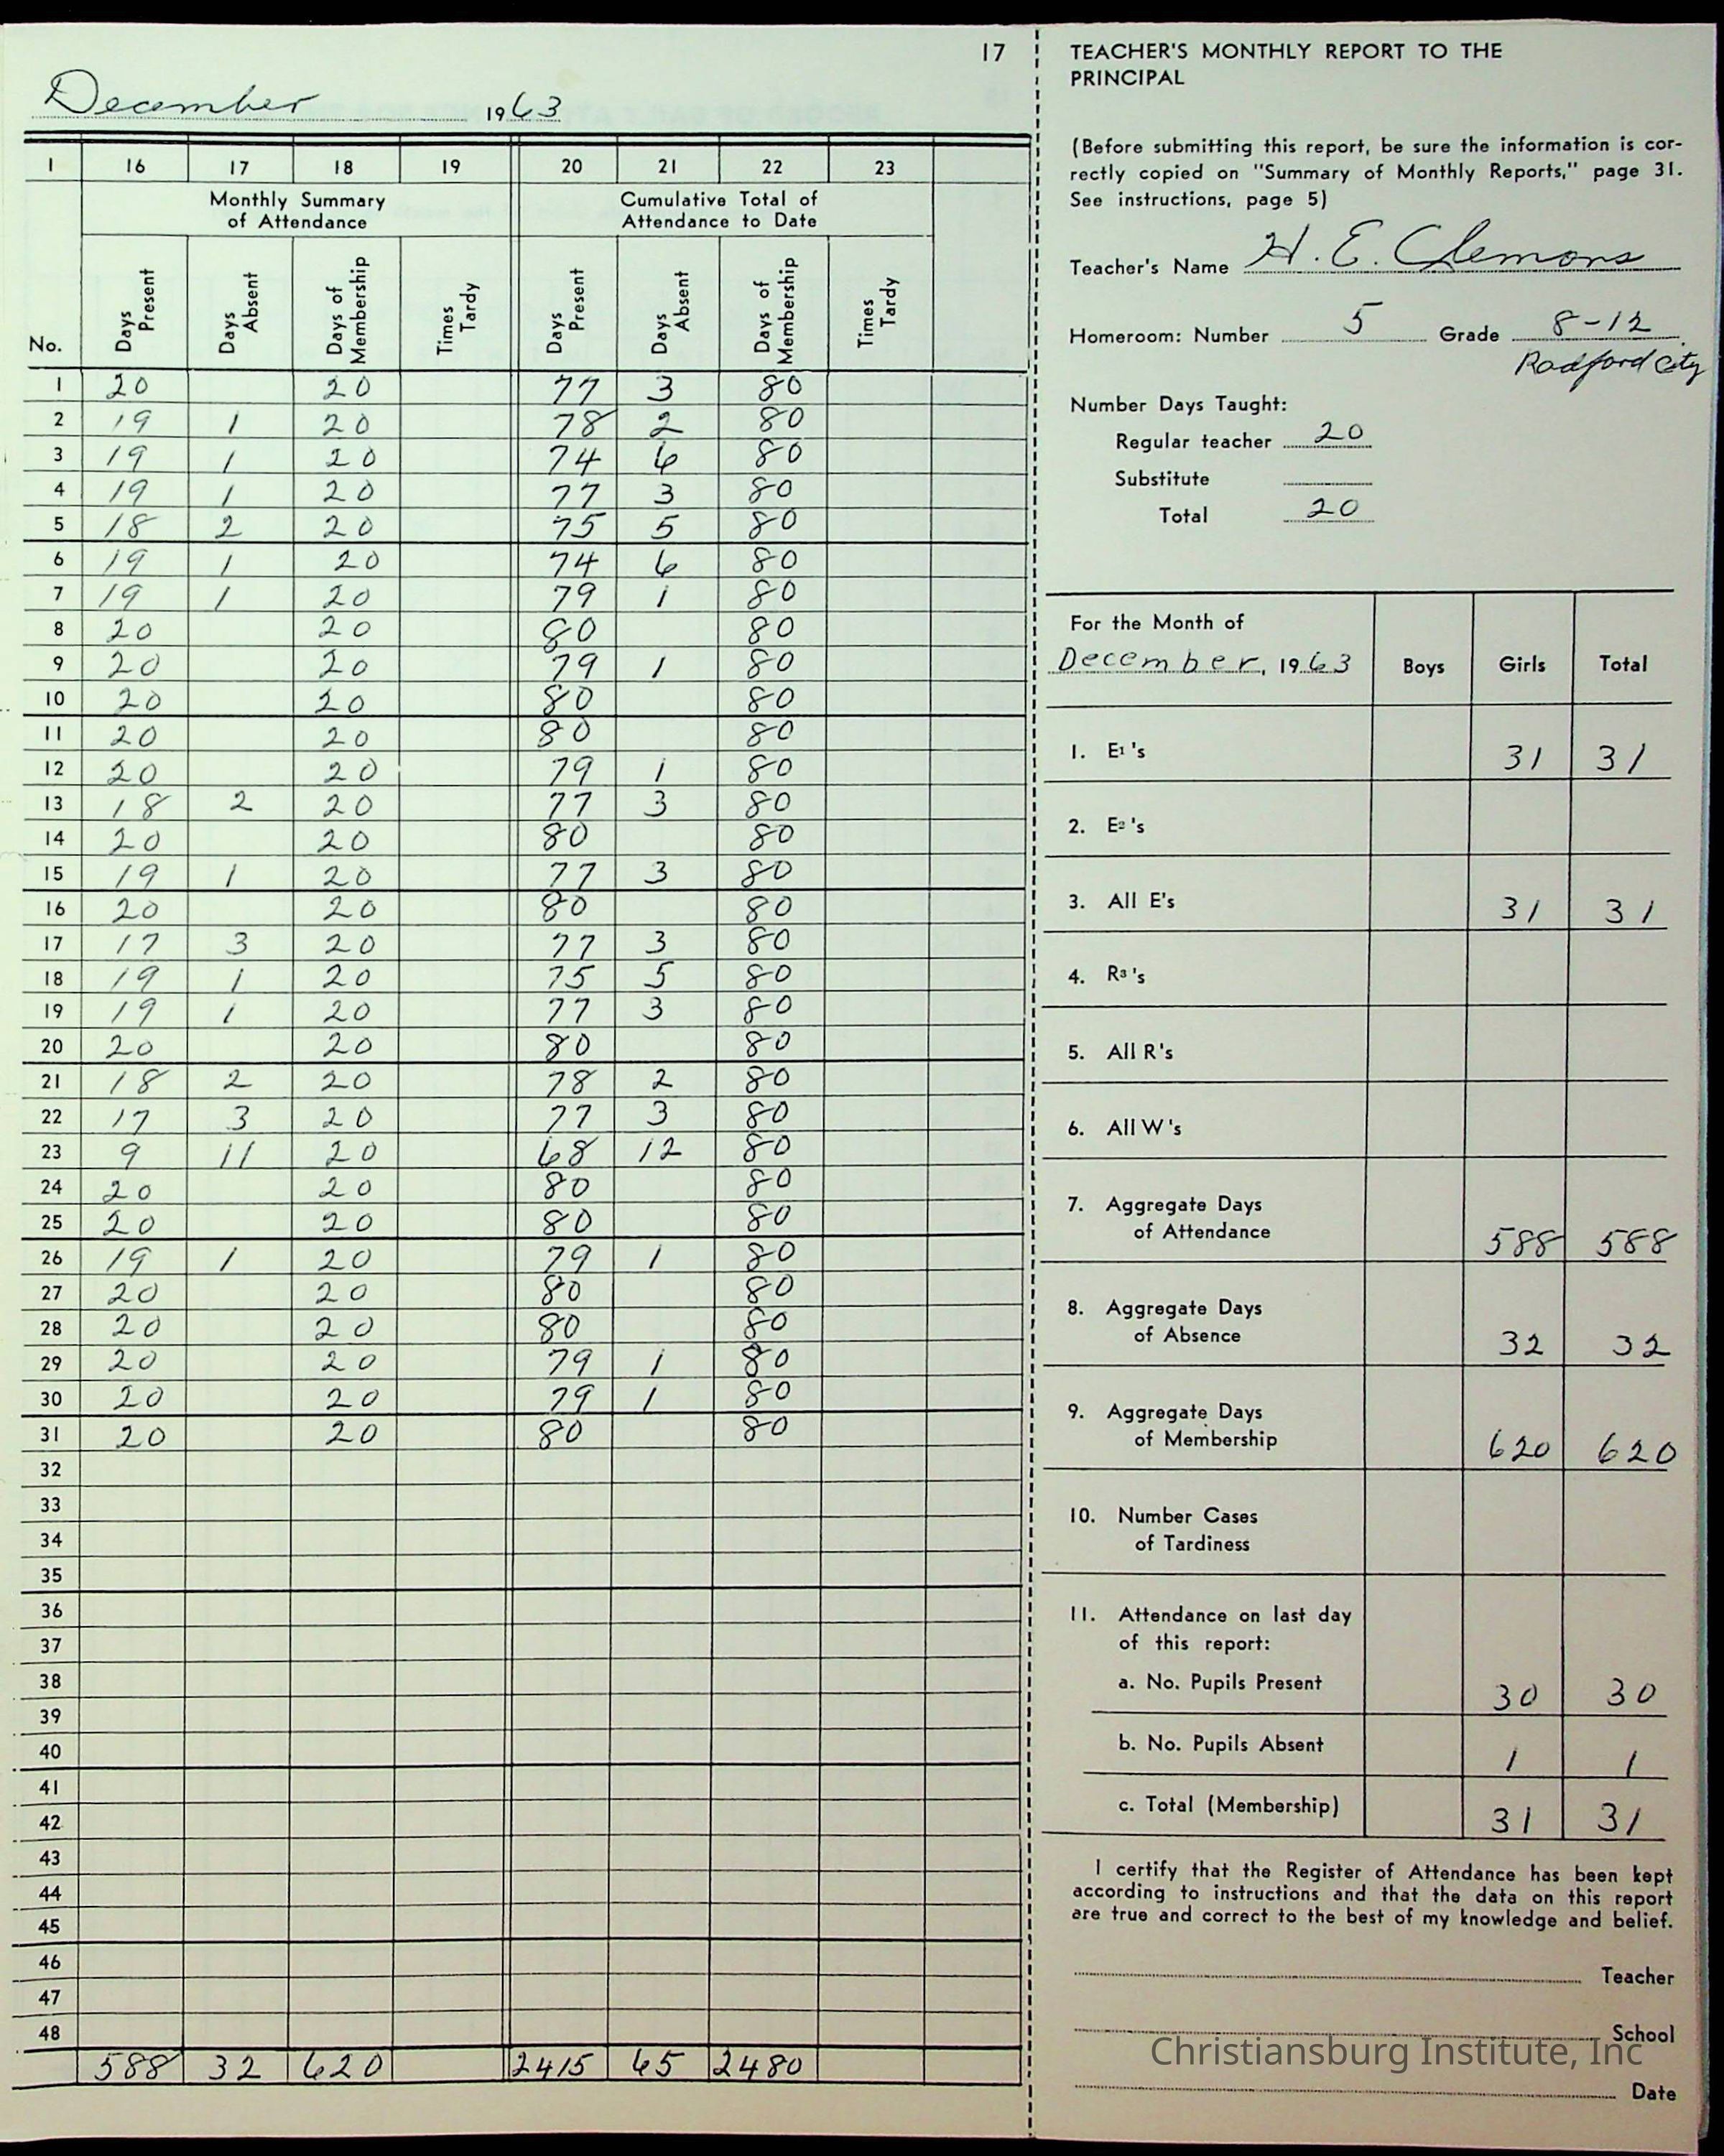 17
December 1963
1 16 17 18 19 20 21 22 23
Monthly Summary of Attendance Cumulative Total of Attendance to Date
No. Days Present Days Absent Days of Membership Times Tardy Days Present Days Absent Days of Membership Times Tardy
1 20 20 77 3 80
2 19 1 20 78 2 80
3 19 1 20 74 6 80
4 19 1 20 77 3 80
5 18 2 20 75 5 80
6 19 1 20 74 6 80
7 19 1 20 79 1 80
8 20 20 80 80
9 20 20 79 1 80
10 20 20 80 80
11 20 20 80 80
12 20 20 79 1 80
13 18 2 20 77 3 80
14 20 20 80 80
15 19 1 20 77 3 80
16 20 20 80 80
17 17 3 20 77 3 80
18 19 1 20 75 5 80
19 19 1 20 77 3 80
20 20 20 80 80
21 18 2 20 78 2 80
22 17 3 20 77 3 80
23 9 11 20 68 12 80
24 20 20 80 80
25 20 20 80 80
26 19 1 20 79 1 80
27 20 20 80 80
28 20 20 80 80
29 20 20 79 1 80
30 20 20 79 1 80
31 20 20 80 80
32
33
34
35
36
37
38
39
40
41
42
43
44
45
46
47
48
588 32 620 2415 65 2480
TEACHER'S MONTHLY REPORT TO THE
PRINCIPAL
(Before submitting this report, be sure the information is cor-
rectly copied on "Summary of Monthly Reports," page 31.
See instructions, page 5)
Teacher's Name H. E. Clemons
Homeroom: Number 5 Grade 8-12
Radford City
Number Days Taught:
Regular teacher 20
Substitute
Total 20
For the Month of
December, 1963 Boys Girls Total
1. E1's 31 31
2. E2's
3. All E's 31 31
4. R3's
5. All R's
6. All W's
7. Aggregate Days
of Attendance 588 588
8. Aggregate Days
of Absence 32 32
9. Aggregate Days
of Membership 620 620
10. Number Cases
of Tardiness
11. Attendance on last day
of this report:
a. No. Pupils Present 30 30
b. No. Pupils Absent 1 1
c. Total (Membership) 31 31
I certify that the Register of Attendance has been kept
according to instructions and that the data on this report
are true and correct to the best of my knowledge and belief.
Teacher
School
Christiansburg Institute, Inc
Date